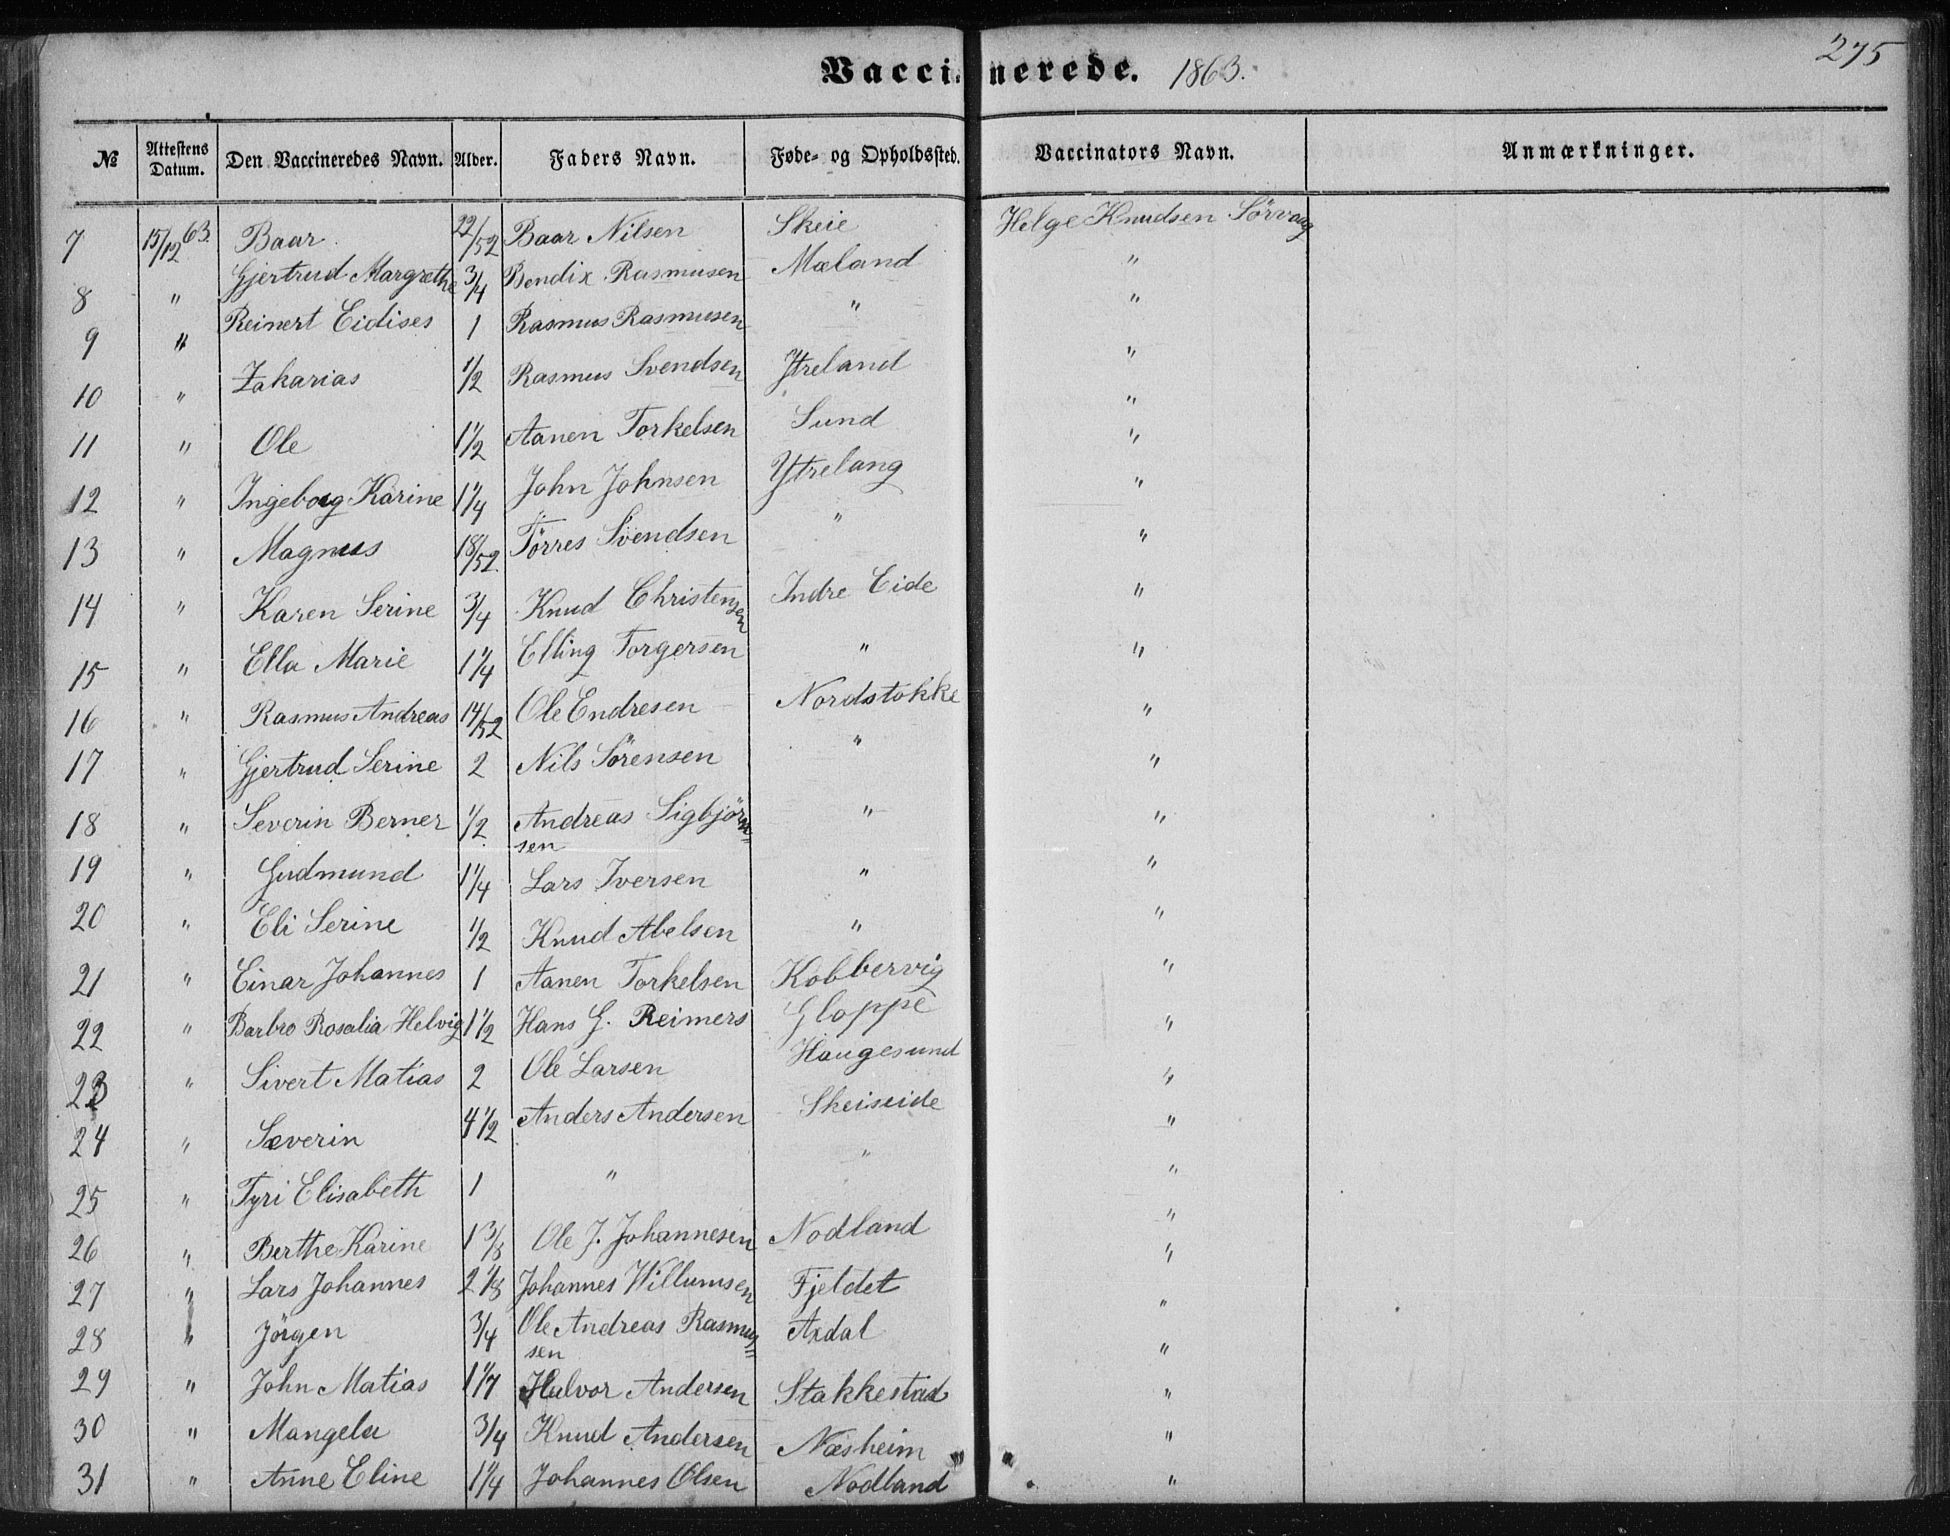 275
Vaccinerede. 1863.
№ | Attestens Datum. | Den Vaccineredes Navn. | Alder. | Faders Navn. | Føde- og Opholdssted. | Vaccinators Navn. | Anmærkninger.
7 | 15/12 63. | Baar | 22/52 | Baar Nilsen | Skeie | Helge Knudsen Sörvaag
8 | " | Gjertrud Margrethe | 3/4 | Bendix Rasmusen | Mæland | "
9 | " | Reinert Eidises | 1 | Rasmus Rasmusen | " | "
10 | " | Zakarias | 1/2 | Rasmus Svendsen | Ytreland | "
11 | " | Ole | 1 1/2 | Aanen Torkelsen | Sund | "
12 | " | Ingeborg Karine | 1 1/4 | John Johnsen | Ytrelang | "
13 | " | Magnus | 18/52. | Törres Svendsen | " | "
14 | " | Karen Serine | 3/4 | Knud Christensen | Indre Eide | "
15 | " | Ella Marie | 1 1/4 | Elling Torgersen | " | "
16 | " | Rasmus Andreas | 14/52 | Ole Endresen | Nordstokke | "
17 | " | Gjertrud Serine | 2 | Nils Sörensen | " | "
18 | " | Severin Berner | 1/2 | Andreas Sigbjörn=
sen | " | "
19 | " | Gudmund | 1 1/4 | Lars Iversen | " | "
20 | " | Eli Serine | 1/2 | Knud Abelsen | " | "
21 | " | Einar Johannes | 1 | Aanen Torkelsen | Kobbervig | "
22 | " | Barbro Rosalia Helvig | 1 1/2 | Hans G. Reimers | Gloppe | "
23 | " | Sivert Matias | 2 | Ole Larsen | Haugesund | "
24 | " | Severin | 4 1/2 | Anders Andersen | Skeiseide | "
25 | " | Tyri Elisabeth | 1 | " | " | "
26 | " | Berthe Karine | 1 3/8 | Ole J. Johannesen | Nodland | "
27 | " | Lars Johannes | 2 1/8 | Johannes Willumsen | Fjeldet | "
28 | " | Jörgen | 3/4 | Ole Andreas Rasmus=
sen | Axdal | "
29 | " | John Matias | 1 1/7 | Halvor Andersen | Stakkestad | "
30 | " | Mangela | 3/4 | Knud Andersen | Næsheim | "
31 | " | Anne Eline | 1 1/4 | Johannes Olsen | Nodland | "